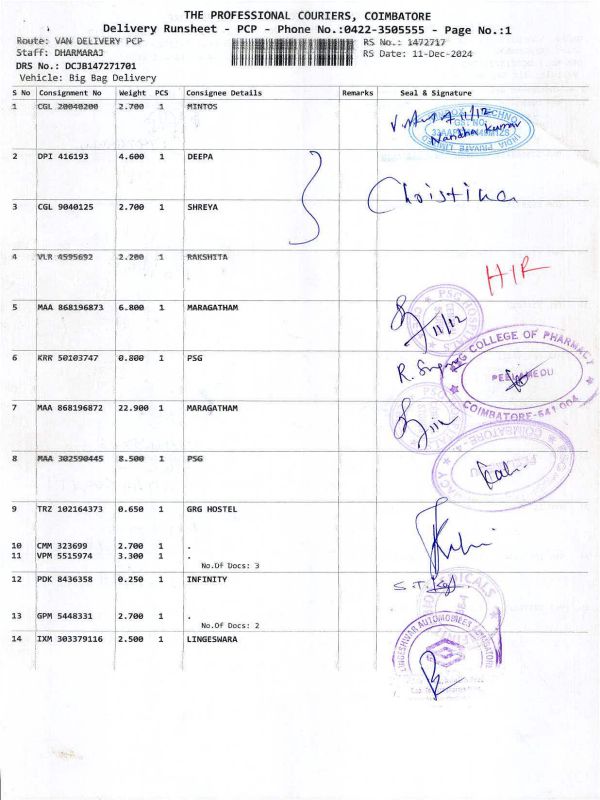 THE PROFESSIONAL COURIERS, COIMBATORE
Delivery Runsheet - PCP - Phone No.:0422-3505555 - Page No.:1
Route: VAN DELIVERY PCP RS No.: 1472717
Staff: DHARMARAJ RS Date: 11-Dec-2024
DRS No.: DCJB147271701
Vehicle: Big Bag Delivery
S No Consignment No Weight PCS Consignee Details Remarks Seal & Signature
1 CGL 20040200 2.700 1 MINTOS
11/12
Nandha Kumar
2 DPI 416193 4.600 1 DEEPA
Christina
3 CGL 9040125 2.700 1 SHREYA
4 VLR 4595692 2.200 1 RAKSHITA
HIR
5 MAA 868196873 6.800 1 MARAGATHAM
PSG HOSPITALS
11/12
6 KRR 50103747 0.800 1 PSG
PSG COLLEGE OF PHARMACY
PEELAMEDU
COIMBATORE-641 004
7 MAA 868196872 22.900 1 MARAGATHAM
8 MAA 302590445 8.500 1 PSG
9 TRZ 102164373 0.650 1 GRG HOSTEL
10 CMM 323699 2.700 1 .
11 VPM 5515974 3.300 1 .
No.Of Docs: 3
12 PDK 8436358 0.250 1 INFINITY
13 GPM 5448331 2.700 1 .
No.Of Docs: 2
14 IXM 303379116 2.500 1 LINGESWARA
LINGESHWAR AUTOMOBILES COIMBATORE